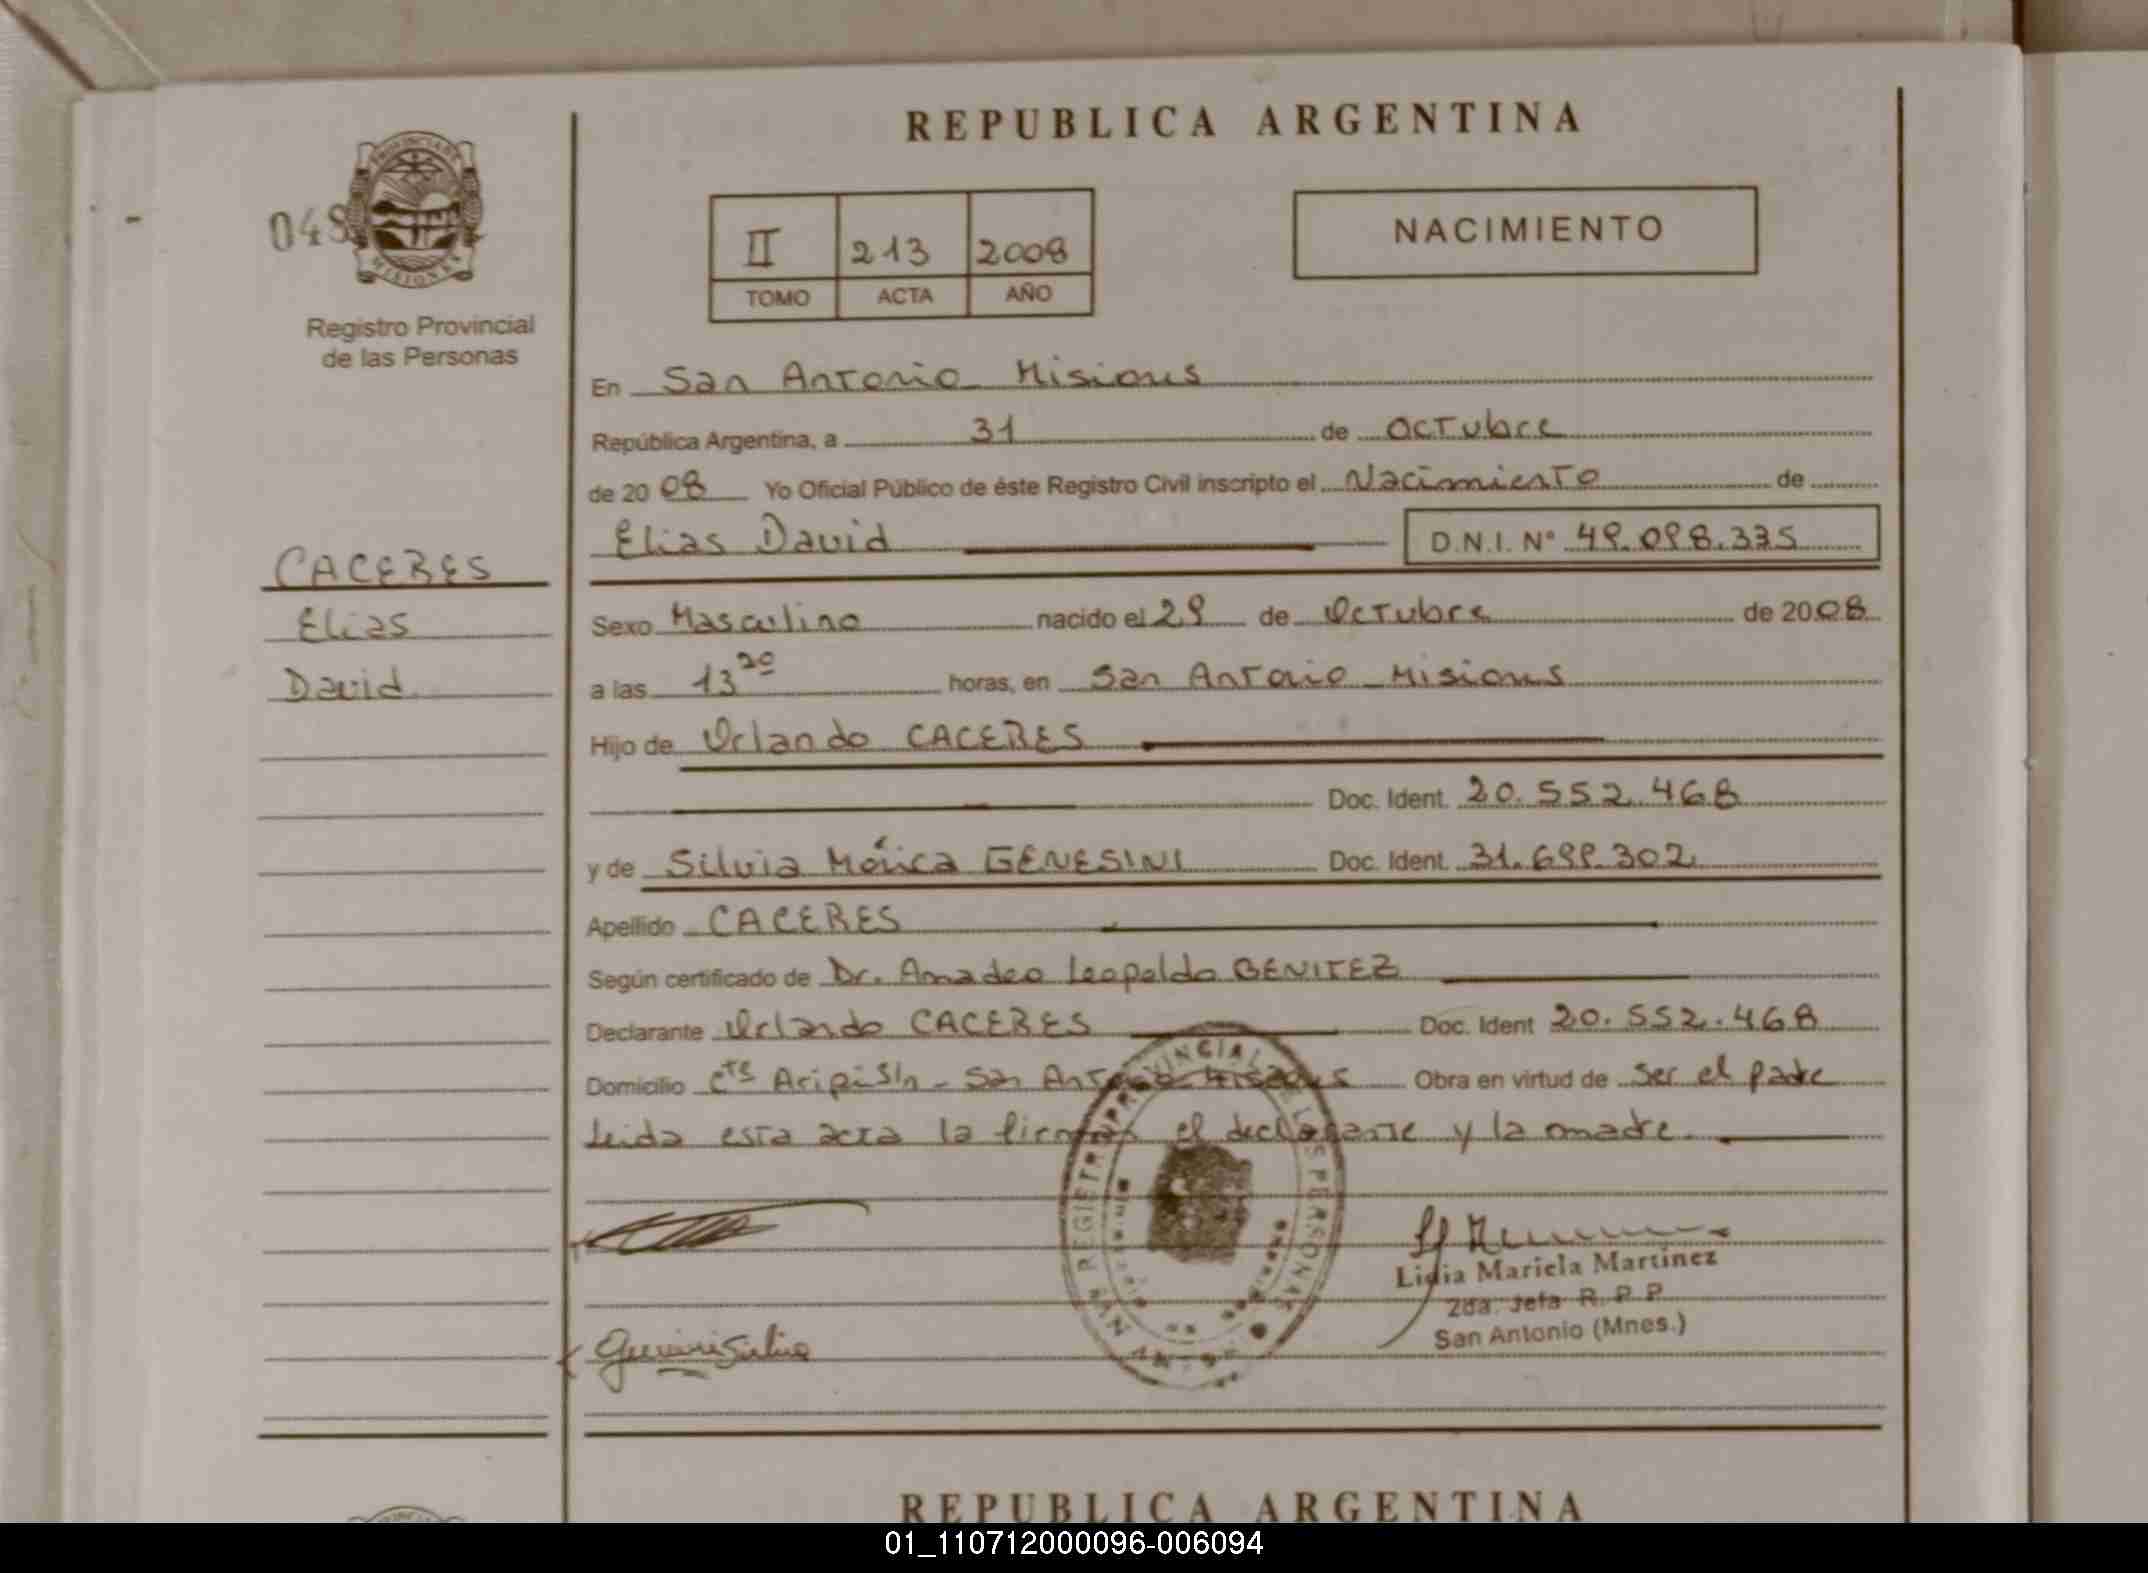 REPUBLICA ARGENTINA
048
PROVINCIA DE
MISIONES
Registro Provincial
de las Personas
II 213 2008
TOMO ACTA AÑO
NACIMIENTO
En San Antonio Misiones
República Argentina, a 31 de Octubre
de 2008 Yo Oficial Público de éste Registro Civil inscripto el Nacimiento de
CACERES
Elias
David
Elias David D.N.I. N° 49.098.335
Sexo Masculino nacido el 29 de Octubre de 2008
a las 13 20 horas, en San Antonio Misiones
Hijo de Orlando CACERES
Doc. Ident. 20.552.468
y de Silvia Mónica GENESINI Doc. Ident. 31.699.302
Apellido CACERES
Según certificado de Dr. Amadeo Leopoldo BENITEZ
Declarante Orlando CACERES Doc. Ident 20.552.468
Domicilio Aripi S/n - San Antonio Misiones Obra en virtud de ser el padre
Leida esta acta la firman el declarante y la madre.
REGISTRO PROVINCIAL DE LAS PERSONAS
Lidia Mariela Martinez
2da. Jefa R. P. P.
San Antonio (Mnes.)
REPUBLICA ARGENTINA
01_110712000096-006094